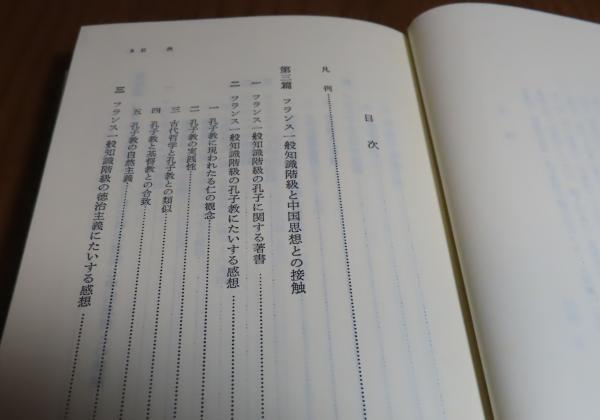 目次
凡例
第三篇 フランス一般知識階級と中国思想との接触
一 フランス一般知識階級の孔子に関する著書
二 フランス一般知識階級の孔子教にたいする感想
一 孔子教に現われたる仁の観念
二 孔子教の実践性
三 古代哲学と孔子教との類似
四 孔子教と基督教との合致
五 孔子教の自然主義
三 フランス一般知識階級の徳治主義にたいする感想
目次